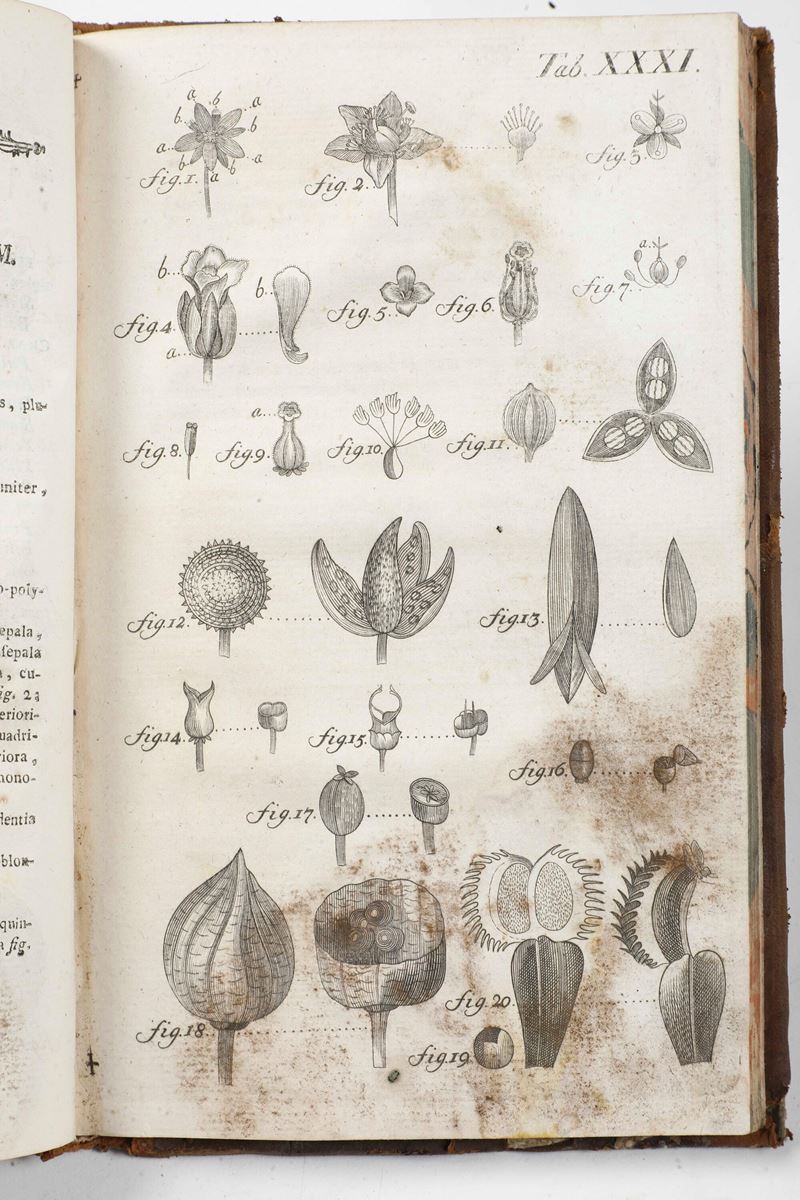 M.
s, plu-
miter,
o-poly-
epala,
sepala
a, cu-
ig. 2;
eriori-
uadri-
riora,
mono-
dentia
blon-
quin-
a fig.
Tab. XXXI.
a b a
b b
a a
b a
fig.1. fig.2. fig.3.
b b a
fig.4. fig.5. fig.6. fig.7.
a
a
fig.8. fig.9. fig.10. fig.11.
fig.12. fig.13.
fig.14. fig.15.
fig.16.
fig.17.
fig.20.
fig.18.
fig.19